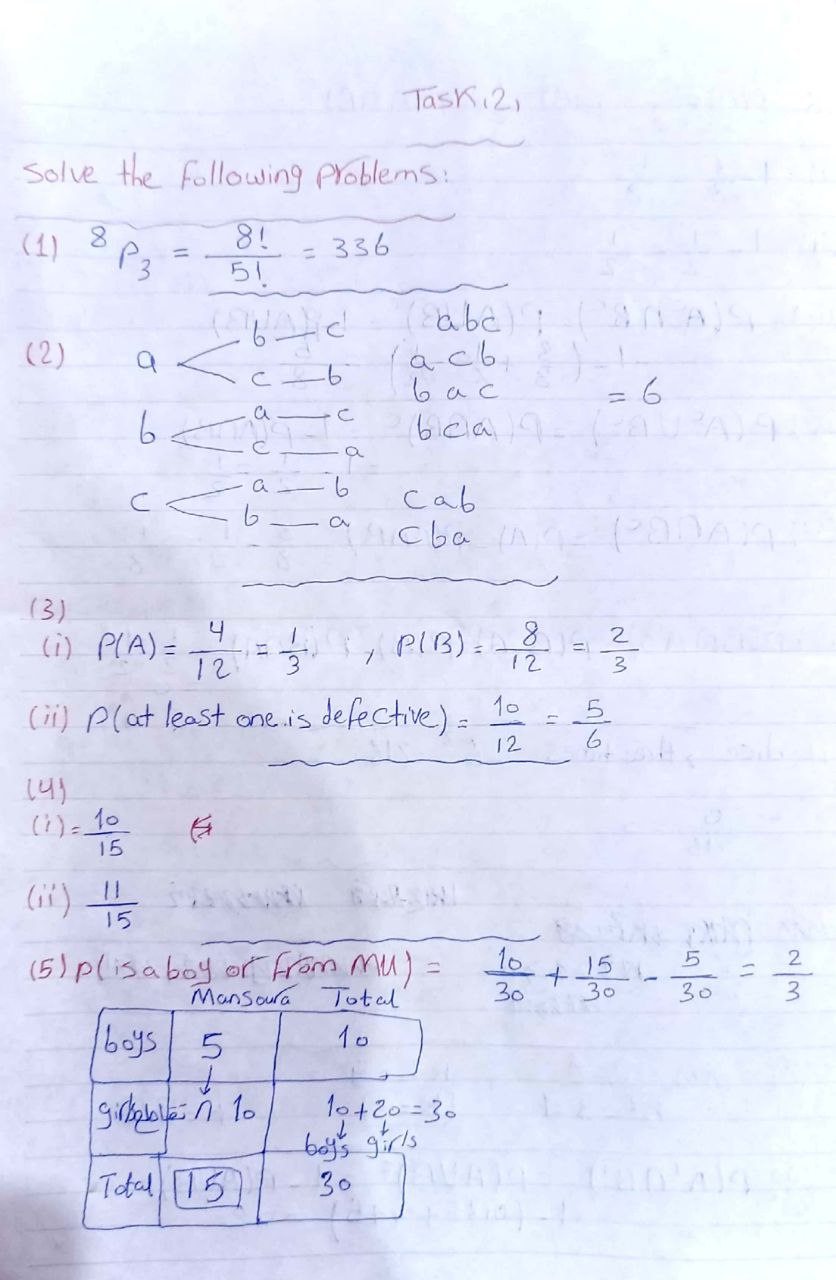 Task 2
Solve the following problems:
(1) 8P3 = 8!/5! = 336
(2) a b — c abc
c — b acb
b a — c bac = 6
c — a bca
c a — b cab
b — a cba
(3)
(i) P(A) = 4/12 = 1/3 , P(B) = 8/12 = 2/3
(ii) P(at least one is defective) = 10/12 = 5/6
(4)
(i) = 10/15
(ii) 11/15
(5) P(is a boy or from MU) = 10/30 + 15/30 - 5/30 = 2/3
Mansoura Total
boys 5 10
n 10 10 + 20 = 30
boys girls
Total 15 30